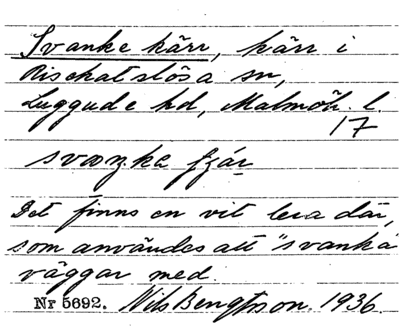 Svanke kärr, kärr i
Rischatslösa sn,
Luggude hd, Malmöh. l.
17
svaŋke fjár
Det finns en vit lera där,
som användes att "svanka"
väggar med.
Nr 5692. Nils Bengtsson. 1936.